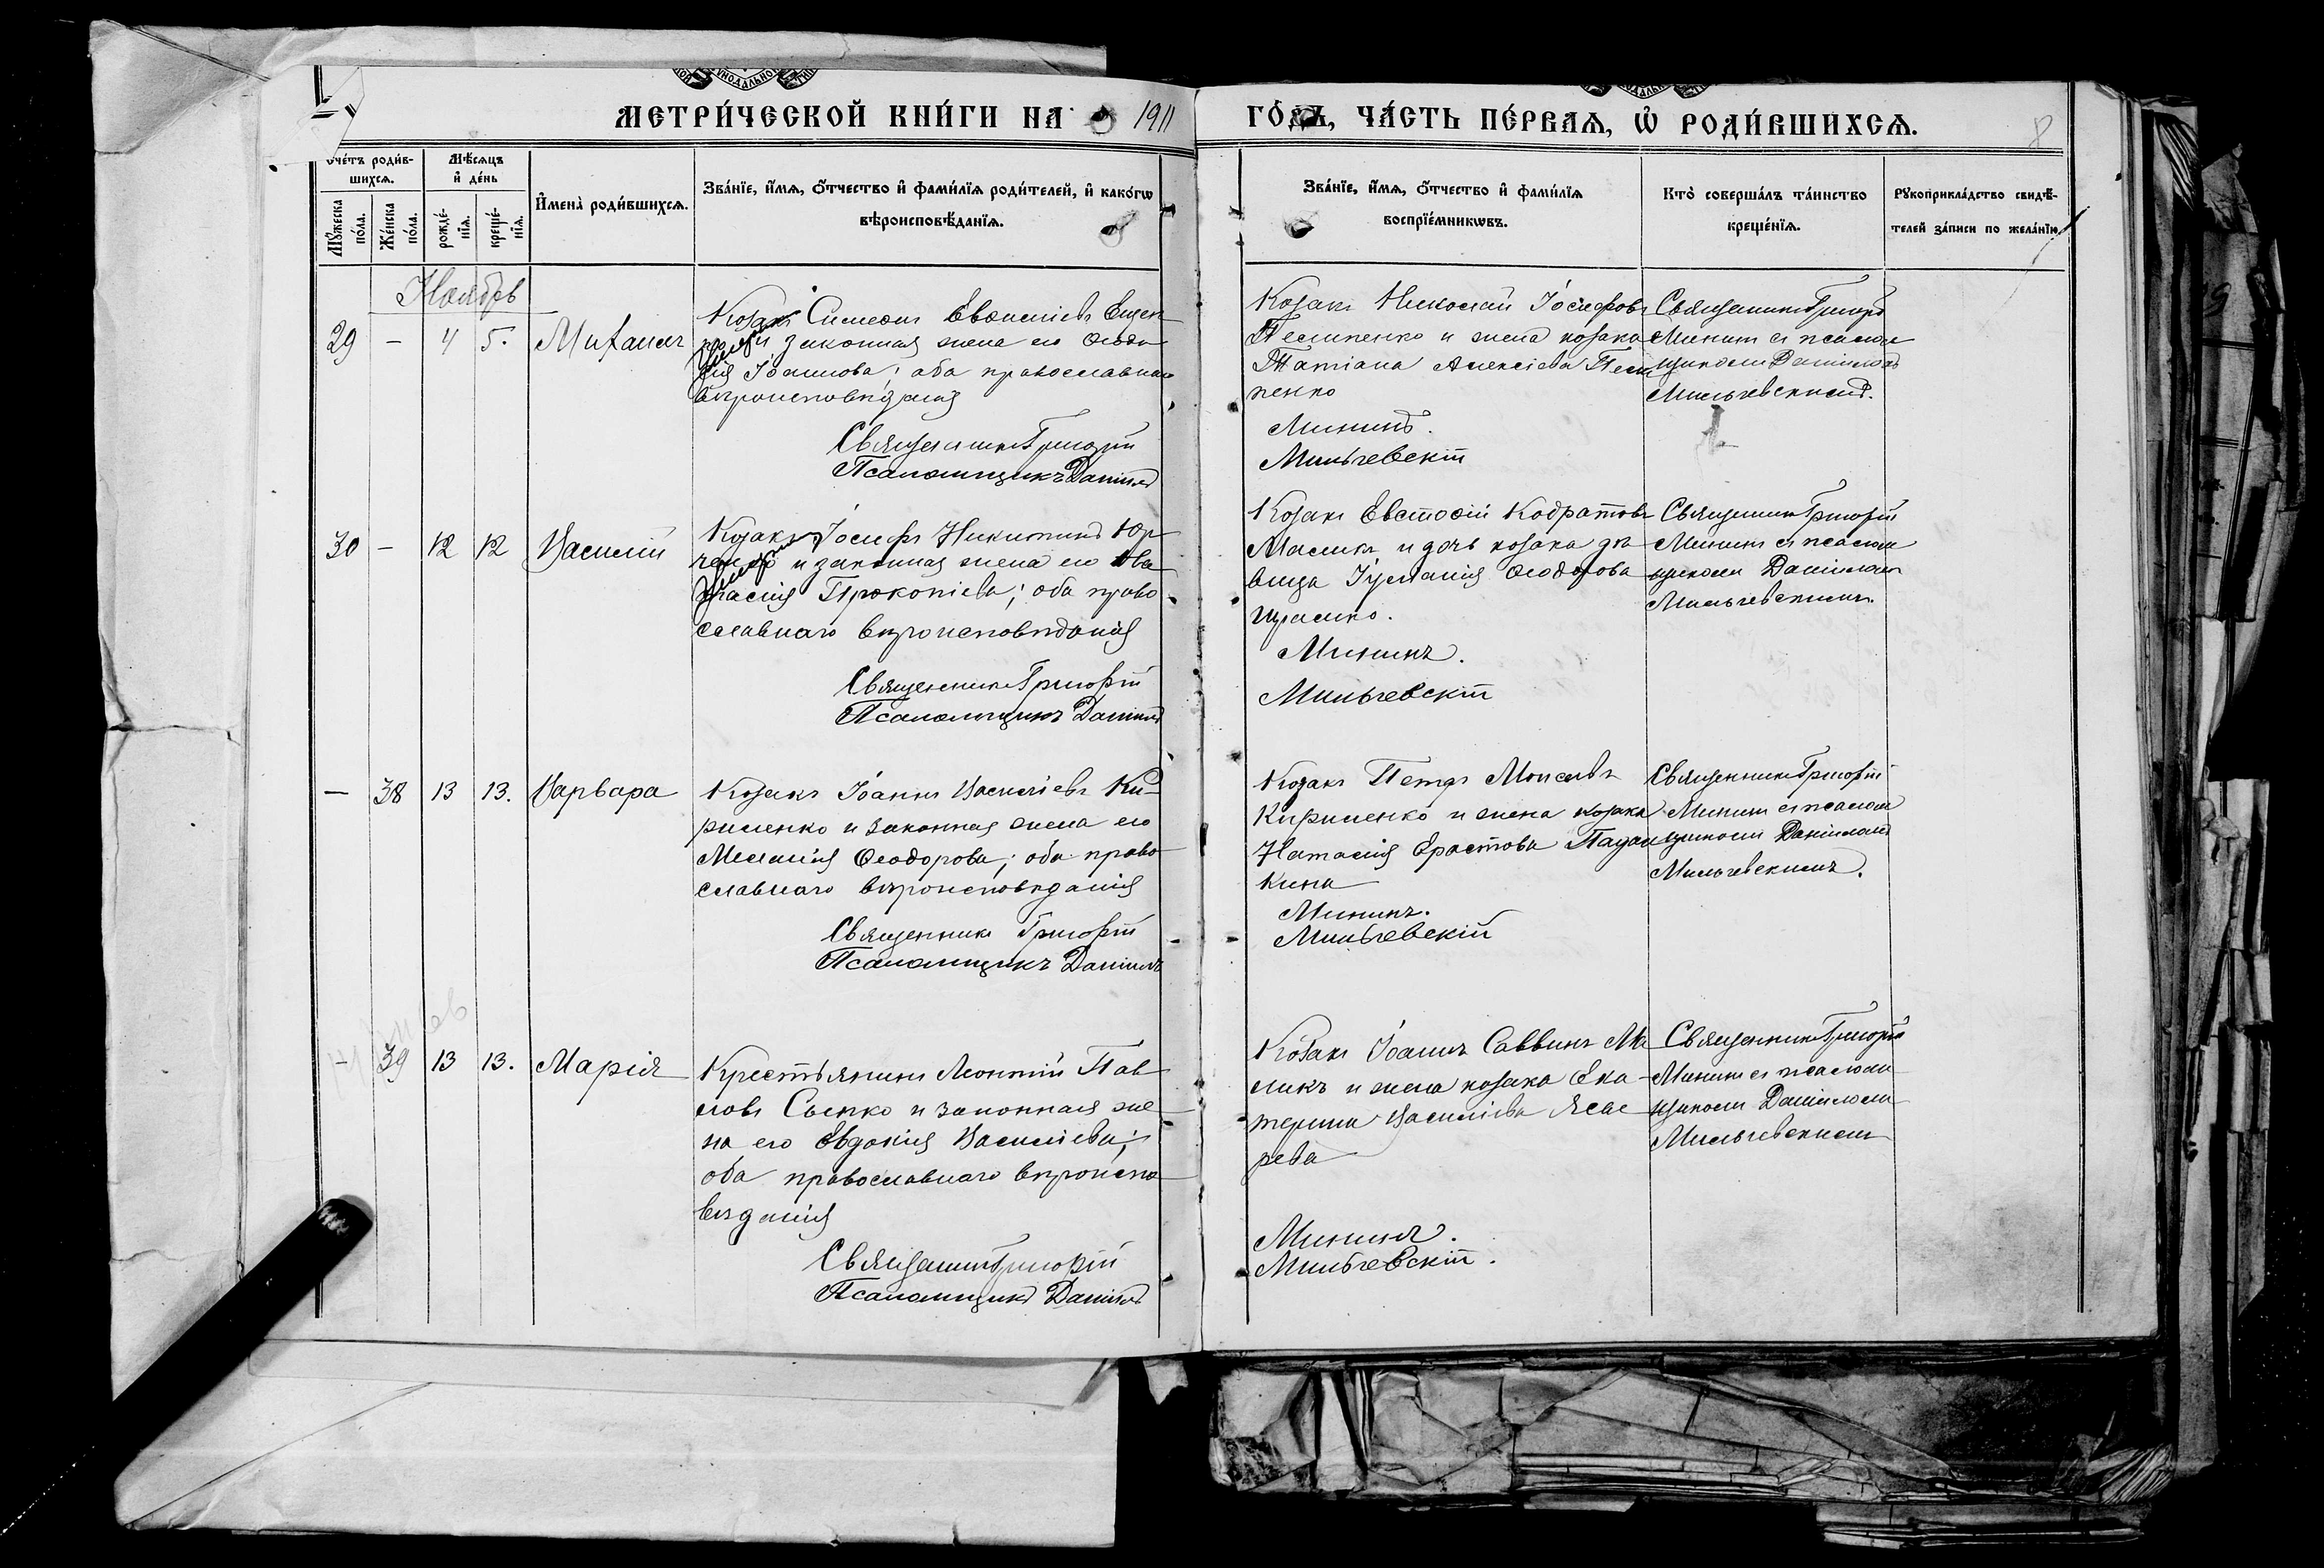 МЕТРИ́ЧЕСКОЙ КНИ́ГИ НА 1911
ГО́ДЪ, ЧА́СТЬ ПЕ́РВАЯ, Ѡ РОДИ́ВШИХСЯ.
8
счетъ роди́в-
шихся.
Мѣ́сяцъ
и де́нь
Имена̀ роди́вшихся.
Зва́нїе, и́мя, о́тчество и фами́лїя роди́телей, и како́гѡ
вѣроисповѣ́данїя.
Му́жеска
по́ла.
Же́нска
по́ла.
рожде́-
нїя.
креще́-
нїя.
Зва́нїе, и́мя, о́тчество и фами́лїя
воспрїе́мникѡвъ.
Кто̀ соверша́лъ та́инство
креще́нїя.
Рукоприкла́дство свидѣ́-
телей за́писи по жела́нїю.
Ноябрь
29 - 4 5. Михаилъ
Козакъ Симеонъ
и законная жена его Ѳеодо
Іоаннова; оба православнаго
вѣроисповѣданія
Священникъ Григорій
Псаломщикъ Даніилъ
Козакъ Николай Іосифовъ
и жена козака
Татіана Алексіева
пенко
Мининъ.
Мильчевскій
Священникъ Григорій
Мининъ съ псалом
щикомъ Даніиломъ
Мильчевскимъ.
30 - 12 12 Василій
Козакъ Іосифъ Никитинъ Юр
ченко и законная жена его
Прокопіева; оба право
славнаго вѣроисповѣданія
Священникъ Григорій
Псаломщикъ Даніилъ
Козакъ Евстафій Кодратовъ
Масликъ и дочь козака дѣ
вица Іуліанія Ѳеодорова
Мининъ.
Мильчевскій
Священникъ Григорій
Мининъ съ псалом
щикомъ Даніиломъ
Мильчевскимъ.
- 38 13 13. Варвара
Козакъ Іоаннъ Василіевъ Ки-
риленко и законная жена его
Меланія Ѳеодорова; оба право
славнаго вѣроисповѣданія
Священникъ Григорій
Псаломщикъ Даніилъ
Козакъ Петръ Моисеевъ
Кириленко и жена козака
Наталія Ерастова
кина
Мининъ.
Мильчевскій
Священникъ Григорій
Мининъ съ псалом
щикомъ Даніиломъ
Мильчевскимъ.
- 39 13 13. Марія
Крестьянинъ Леонтій Пав
ловъ и законная же
на его Евдокія Василіева;
оба православнаго вѣроиспо
вѣданія
Священникъ Григорій
Псаломщикъ Даніилъ
Козакъ Іоаннъ Саввинъ Ма
ликъ и жена козака Ека-
терина Василіева
рева
Мининъ.
Мильчевскій.
Священникъ Григорій
Мининъ съ псалом
щикомъ Даніиломъ
Мильчевскимъ